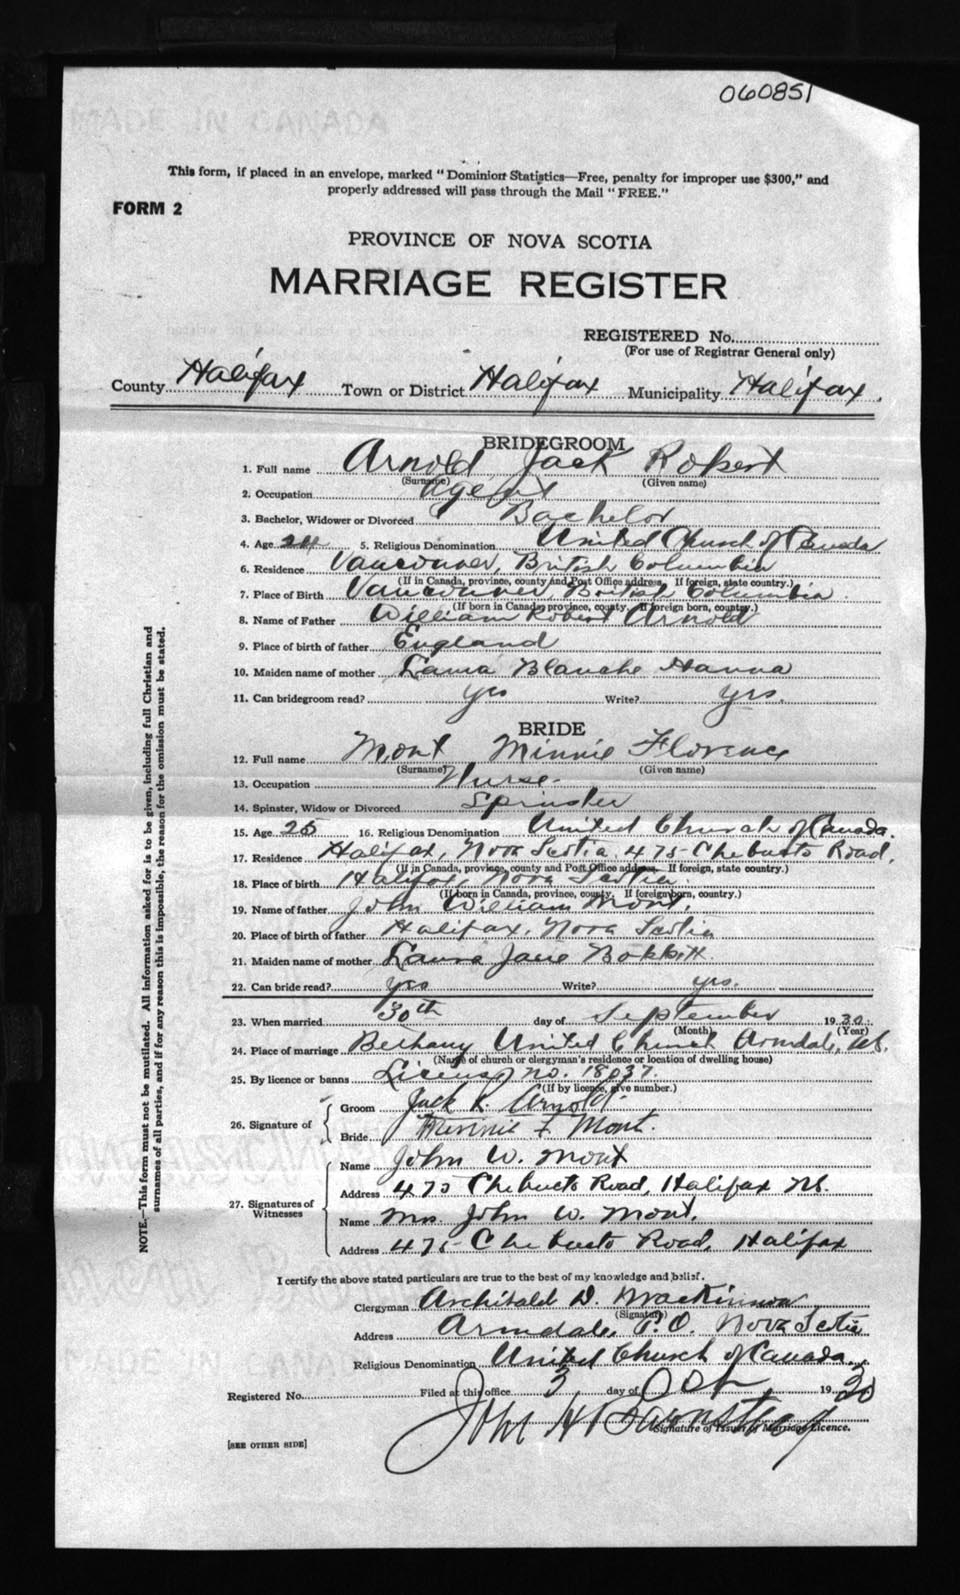 060851
This form, if placed in an envelope, marked "Dominion Statistics—Free, penalty for improper use $300," and
properly addressed will pass through the Mail "FREE."
FORM 2
PROVINCE OF NOVA SCOTIA
MARRIAGE REGISTER
REGISTERED No.
(For use of Registrar General only)
County Halifax Town or District Halifax Municipality Halifax.
BRIDEGROOM
1. Full name Arnold Jack Robert
(Surname) (Given name)
2. Occupation Agent
3. Bachelor, Widower or Divorced Bachelor
4. Age 24 5. Religious Denomination United Church of Canada
6. Residence Vancouver, British Columbia
(If in Canada, province, county and Post Office address. If foreign, state country.)
7. Place of Birth Vancouver, British Columbia
(If born in Canada, province, county. If foreign born, country.)
8. Name of Father William Robert Arnold
9. Place of birth of father England
10. Maiden name of mother Blanche Hanna
11. Can bridegroom read? yes Write? yes.
BRIDE
12. Full name Mont Minnie Florence
(Surname) (Given name)
13. Occupation Nurse.
14. Spinster, Widow or Divorced Spinster
15. Age 25 16. Religious Denomination United Church of Canada.
17. Residence Halifax, Nova Scotia, 475 Chebucto Road,
(If in Canada, province, county and Post Office address. If foreign, state country.)
18. Place of birth Halifax, Nova Scotia
(If born in Canada, province, county. If foreign born, country.)
19. Name of father John William Mont.
20. Place of birth of father Halifax, Nova Scotia
21. Maiden name of mother Laura Jane
22. Can bride read? yes Write? yes.
23. When married 30th day of September 1930.
(Month) (Year)
24. Place of marriage Bethany United Church Armdale, N.S.
(Name of church or clergyman's residence or location of dwelling house)
25. By licence or banns License no. 18037.
(If by licence, give number.)
26. Signature of
Groom Jack R. Arnold.
Bride Minnie F. Mont.
27. Signatures of Witnesses
Name John W. Mont
Address 475 Chebucto Road, Halifax N.S.
Name Mrs. John W. Mont.
Address 475 Chebucto Road, Halifax
I certify the above stated particulars are true to the best of my knowledge and belief.
Clergyman Archibald D. MacKinnon
(Signature)
Address Armdale, P.O. Nova Scotia
Religious Denomination United Church of Canada.
Registered No. Filed at this office 3 day of Oct 1930
John H Barnstead
Signature of Issuer of Marriage Licence.
[SEE OTHER SIDE]
NOTE.—This form must not be mutilated. All information asked for is to be given, including full Christian and
surnames of all parties, and if for any reason this is impossible, the reason for the omission must be stated.